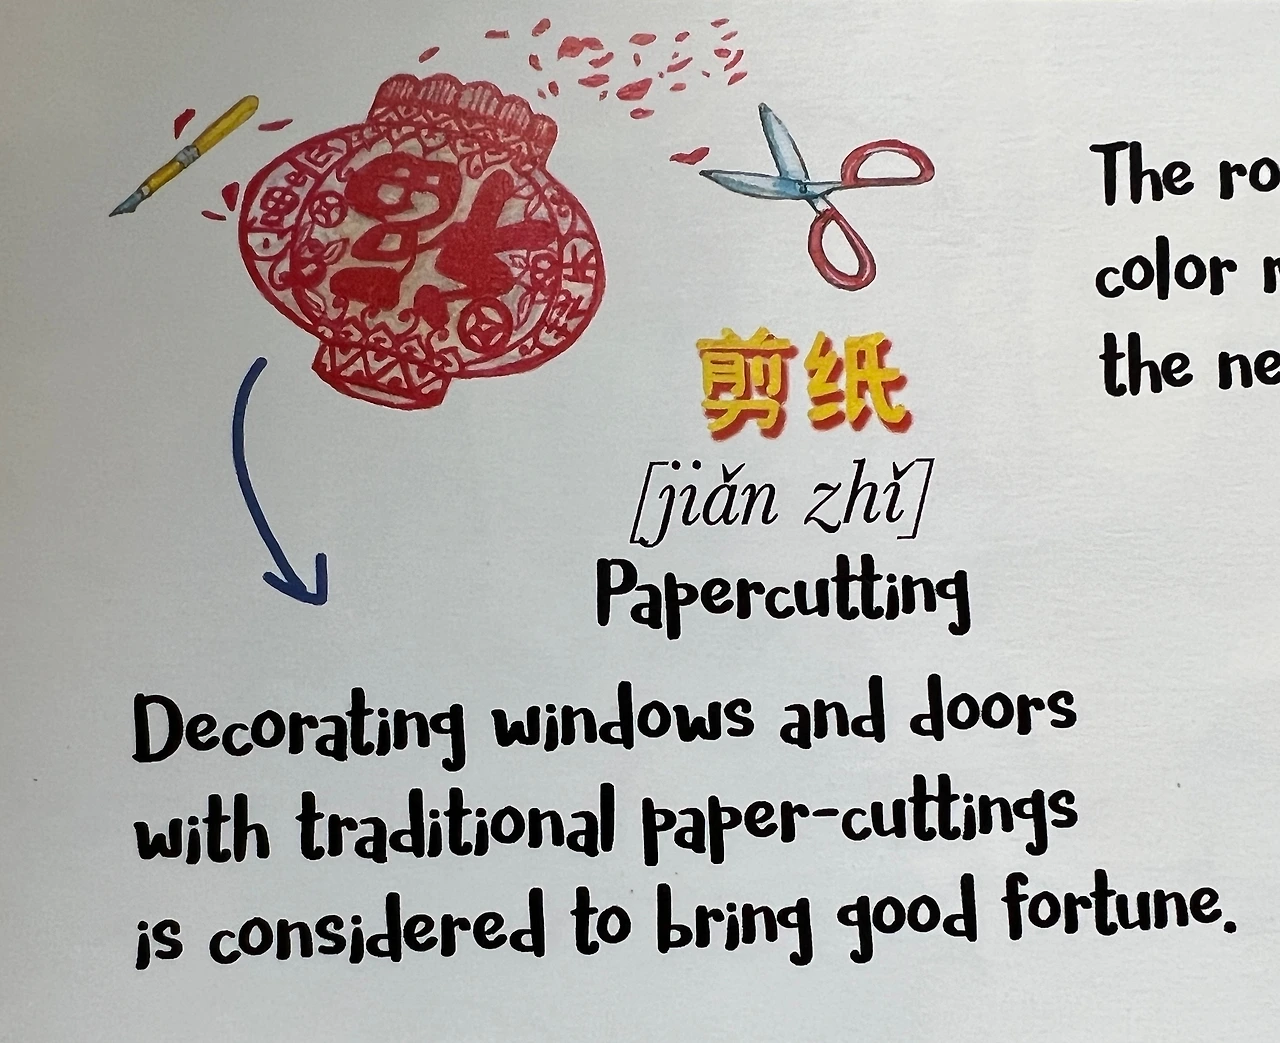 剪纸
[jiǎn zhǐ]
Papercutting
Decorating windows and doors
with traditional paper-cuttings
is considered to bring good fortune.
The ro
color
the ne